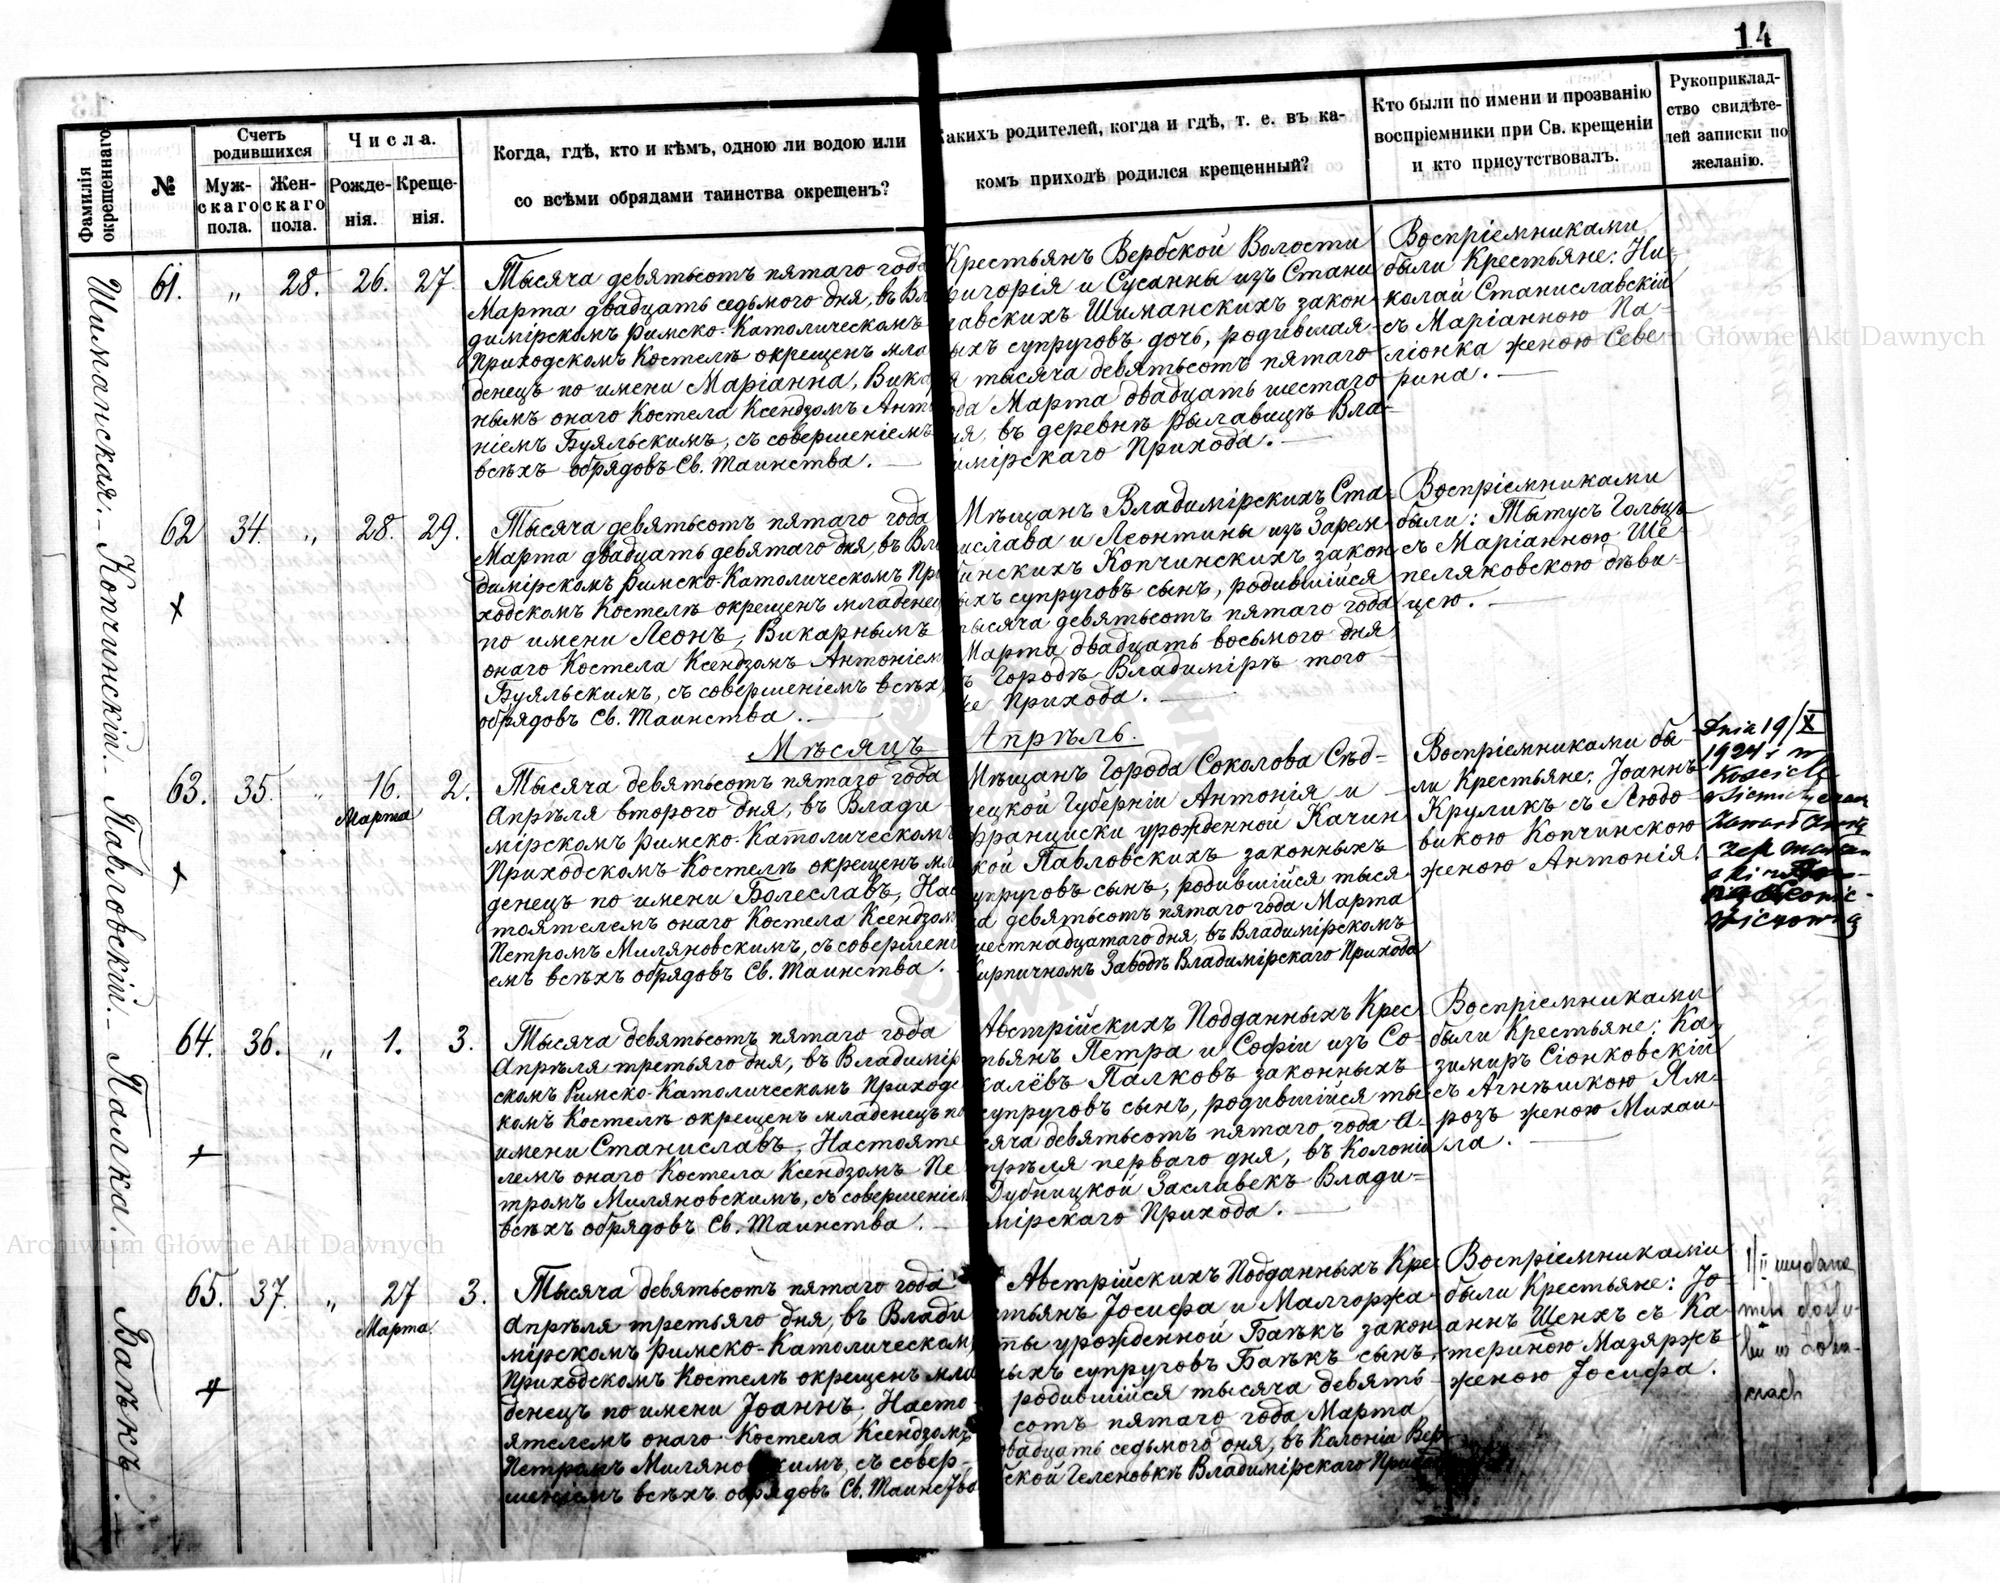 14
Фамилія
окрещеннаго.
№
Счетъ
родившихся
Муж-
скаго
пола.
Жен-
скаго
пола.
Числа.
Рожде-
нія.
Креще-
нія.
Когда, гдѣ, кто и кѣмъ, одною ли водою или
со всѣми обрядами таинства окрещенъ?
Какихъ родителей, когда и гдѣ, т. е. въ ка-
комъ приходѣ родился крещенный?
Кто были по имени и прозванію
воспріемники при Св. крещеніи
и кто присутствовалъ.
Рукоприклад-
ство свидѣте-
лей записки по
желанію.
Шиманская.
61. „ 28. 26. 27.
Тысяча девятьсотъ пятаго года
Марта двадцать седьмого дня, въ Вла
димірскомъ Римско-Католическомъ
Приходскомъ Костелѣ окрещенъ мла
денецъ по имени Маріанна, Викар
нымъ онаго Костела Ксендзомъ Анто
ніемъ Буяльскимъ, съ совершеніемъ
всѣхъ обрядовъ Св. Таинства.
Крестьянъ Вербской Волости
ригорія и Сусанны изъ Стани
лавскихъ Шиманскихъ закон
ыхъ супруговъ дочь, родившая-
я тысяча девятьсотъ пятаго
ода Марта двадцать шестаго
ня, въ деревнѣ Рылавицѣ Вла-
имірскаго Прихода.
Воспріемниками
были Крестьяне: Ни-
колай Станиславскій
съ Маріанною Па-
ліонка женою Севе-
рина.
Копчинскій.
62 34. „ 28. 29.
Тысяча девятьсотъ пятаго года
Марта двадцать девятаго дня, въ Вла
димірскомъ Римско-Католическомъ При
ходскомъ Костелѣ окрещенъ младенец
по имени Леонъ, Викарнымъ
онаго Костела Ксендзомъ Антоніем
Буяльскимъ, съ совершеніемъ всѣхъ
обрядовъ Св. Таинства.
Мѣщанъ Владимірскихъ Ста-
ислава и Леонтины изъ Зарем
бинскихъ Копчинскихъ закон
ыхъ супруговъ сынъ, родившійся
тысяча девятьсотъ пятаго года
Марта двадцать восьмого дня
ъ Городѣ Владимірѣ того
же Прихода.
Воспріемниками
были: Тытусъ Гольцъ
съ Маріанною Ше-
пеляковскою дѣви-
цею.
Мѣсяцъ Апрѣль.
Павловскій.
63. 35. „ 16. 2.
Марта
Тысяча девятьсотъ пятаго года
Апрѣля второго дня, въ Влади
мірскомъ Римско-Католическомъ
Приходскомъ Костелѣ окрещенъ мла
денецъ по имени Болеславъ, Нас
тоятелемъ онаго Костела Ксендзом
Петромъ Миляновскимъ, съ совершені
емъ всѣхъ обрядовъ Св. Таинства.
Мѣщанъ Города Соколова Сѣд-
лецкой Губерніи Антонія и
Франциски урожденной Качин
кой Павловскихъ законныхъ
упруговъ сынъ, родившійся тыся
ча девятьсотъ пятаго года Марта
шестнадцатаго дня, въ Владимірскомъ
Кирпичномъ Заводѣ Владимірскаго Прихода
Воспріемниками бы-
ли Крестьяне: Іоаннъ
Круликъ съ Людо-
викою Копчинскою
женою Антонія.
Dnia 19/X
1924 r. w
Палка.
64. 36. „ 1. 3.
Тысяча девятьсотъ пятаго года
Апрѣля третьяго дня, въ Владимір
скомъ Римско-Католическомъ Приходс
комъ Костелѣ окрещенъ младенецъ по
имени Станиславъ, Настояте
лемъ онаго Костела Ксендзомъ Пе
тромъ Миляновскимъ, съ совершеніем
всѣхъ обрядовъ Св. Таинства.
Австрійскихъ Подданныхъ Крес
тьянъ Петра и Софіи изъ Со-
калёвъ Палковъ законныхъ
супруговъ сынъ, родившійся ты
сяча девятьсотъ пятаго года А-
прѣля перваго дня, въ Колоніи
Дубницкой Заславекъ Влади-
мірскаго Прихода.
Воспріемниками
были Крестьяне: Ка-
зимиръ Сіонковскій
съ Агнѣшкою Ям-
розъ женою Михаи-
ла.
Баѣкъ.
65. 37. „ 27 3.
Марта.
Тысяча девятьсотъ пятаго года
Апрѣля третьяго дня, въ Влади
мірскомъ Римско-Католическом
Приходскомъ Костелѣ окрещенъ мла
денецъ по имени Іоаннъ. Насто-
ятелемъ онаго Костела Ксендзомъ
Петромъ Миляновскимъ, съ совер-
шеніемъ всѣхъ обрядовъ Св. Таинства
Австрійскихъ Подданныхъ Кре-
стьянъ Іосифа и Малгоржа-
ты урожденной Баѣкъ закон
ныхъ супруговъ Баѣкъ сынъ,
родившійся тысяча девять-
сотъ пятаго года Марта
двадцать седьмого дня, въ Колоніи Вер-
бской Геленовкѣ Владимірскаго
Воспріемниками
были Крестьяне: Іо-
аннъ Шенхъ съ Ка-
териною Мазяржъ
женою Іосифа.
Archiwum Główne Akt Dawnych
Archiwum Główne Akt Dawnych